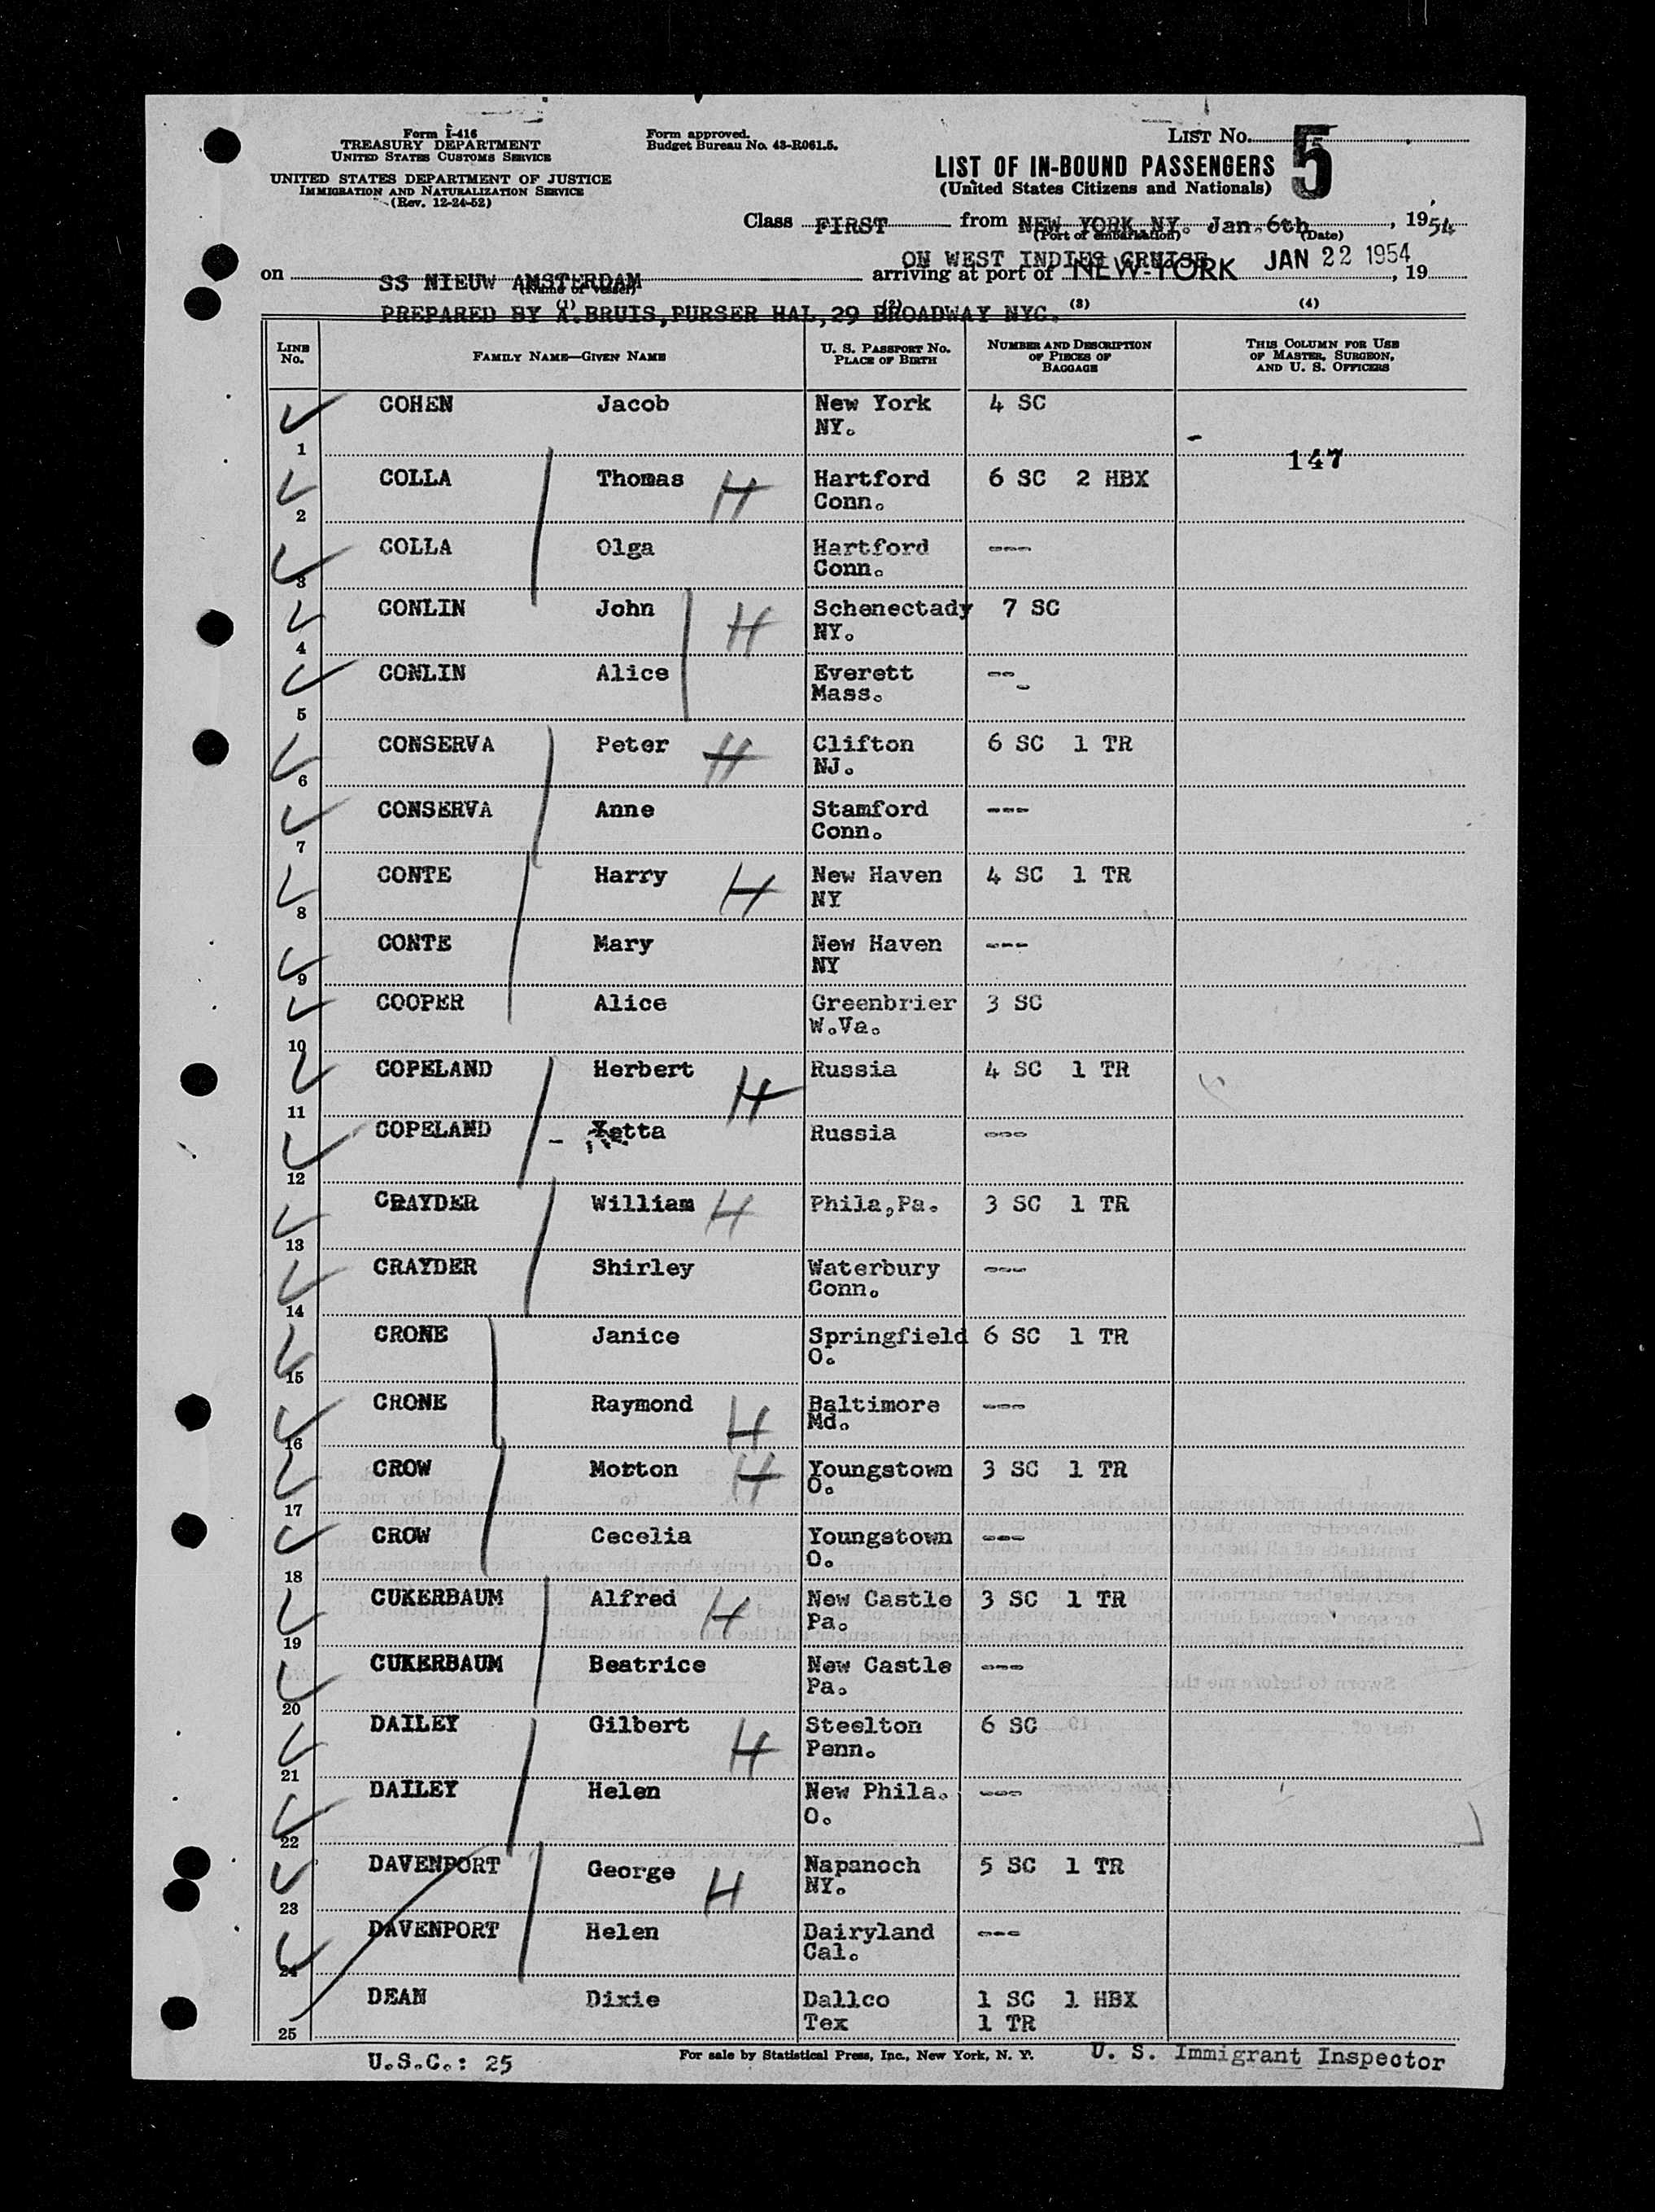 Form I-416
TREASURY DEPARTMENT
UNITED STATES CUSTOMS SERVICE
UNITED STATES DEPARTMENT OF JUSTICE
IMMIGRATION AND NATURALIZATION SERVICE
(Rev. 12-24-52)
Form approved.
Budget Bureau No. 43-R061.5.
LIST No. 5
LIST OF IN-BOUND PASSENGERS
(United States Citizens and Nationals)
Class FIRST from NEW YORK NY. Jan. 6th, 1954
(Port of embarkation) (Date)
ON WEST INDIES CRUISE
on SS NIEUW AMSTERDAM arriving at port of NEW-YORK JAN 22 1954, 19
(Name of vessel)
PREPARED BY A.BRUIS, PURSER HAL, 29 BROADWAY NYC.
(1) (2) (3) (4)
LINE No. FAMILY NAME—GIVEN NAME U. S. PASSPORT No. PLACE OF BIRTH NUMBER AND DESCRIPTION OF PIECES OF BAGGAGE THIS COLUMN FOR USE OF MASTER, SURGEON, AND U. S. OFFICERS
1 COHEN Jacob New York NY. 4 SC
147
2 COLLA Thomas H Hartford Conn. 6 SC 2 HBX
3 COLLA Olga Hartford Conn. ---
4 CONLIN John H Schenectady NY. 7 SC
5 CONLIN Alice Everett Mass. ---
6 CONSERVA Peter H Clifton NJ. 6 SC 1 TR
7 CONSERVA Anne Stamford Conn. ---
8 CONTE Harry H New Haven NY 4 SC 1 TR
9 CONTE Mary New Haven NY ---
10 COOPER Alice Greenbrier W.Va. 3 SC
11 COPELAND Herbert H Russia 4 SC 1 TR
12 COPELAND Yetta Russia ---
13 CRAYDER William H Phila,Pa. 3 SC 1 TR
14 CRAYDER Shirley Waterbury Conn. ---
15 CRONE Janice Springfield O. 6 SC 1 TR
16 CRONE Raymond H Baltimore Md. ---
17 CROW Morton H Youngstown O. 3 SC 1 TR
18 CROW Cecelia Youngstown O. ---
19 CUKERBAUM Alfred H New Castle Pa. 3 SC 1 TR
20 CUKERBAUM Beatrice New Castle Pa. ---
21 DAILEY Gilbert H Steelton Penn. 6 SC
22 DAILEY Helen New Phila. O. ---
23 DAVENPORT George H Napanoch NY. 5 SC 1 TR
24 DAVENPORT Helen Dairyland Cal. ---
25 DEAN Dixie Dallco Tex 1 SC 1 HBX 1 TR
U.S.C.: 25
For sale by Statistical Press, Inc., New York, N. Y.
U. S. Immigrant Inspector